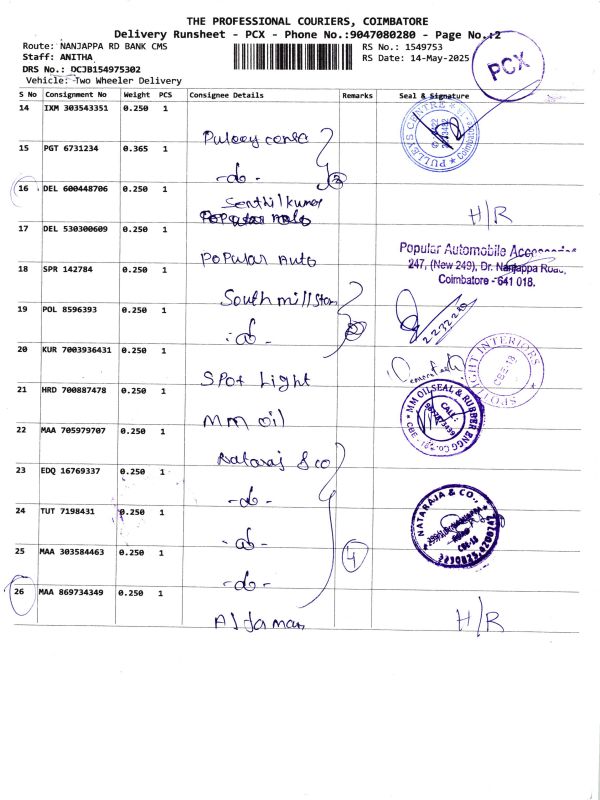 THE PROFESSIONAL COURIERS, COIMBATORE
Delivery Runsheet - PCX - Phone No.:9047080280 - Page No.:2
Route: NANJAPPA RD BANK CMS
RS No.: 1549753
Staff: ANITHA
RS Date: 14-May-2025
DRS No.: DCJB154975302
Vehicle: Two Wheeler Delivery
PCX
S No Consignment No Weight PCS Consignee Details Remarks Seal & Signature
14 IXM 303543351 0.250 1
Pulley cente
PULLEYS CENTRE
Coimbatore
15 PGT 6731234 0.365 1
-do-
2
16 DEL 600448706 0.250 1
Senthilkumar
Popular Auto
H/R
17 DEL 530300609 0.250 1
Popular Auto
Popular Automobile Accessories
247, (New 249), Dr. Nanjappa Road,
Coimbatore - 641 018.
18 SPR 142784 0.250 1
South mill Ston
19 POL 8596393 0.250 1
-do-
2
20 KUR 7003936431 0.250 1
Spot Light
SPOTLIGHT INTERIORS
CBE-18
21 HRD 700887478 0.250 1
MM oil
MM OILSEAL & RUBBER ENGG Co.
CALL:
22 MAA 705979707 0.250 1
Nataraj & co
23 EDQ 16769337 0.250 1
-do-
24 TUT 7198431 0.250 1
-do-
NATARAJA & CO.,
CBE-18
25 MAA 303584463 0.250 1
-do-
4
26 MAA 869734349 0.250 1
H/R